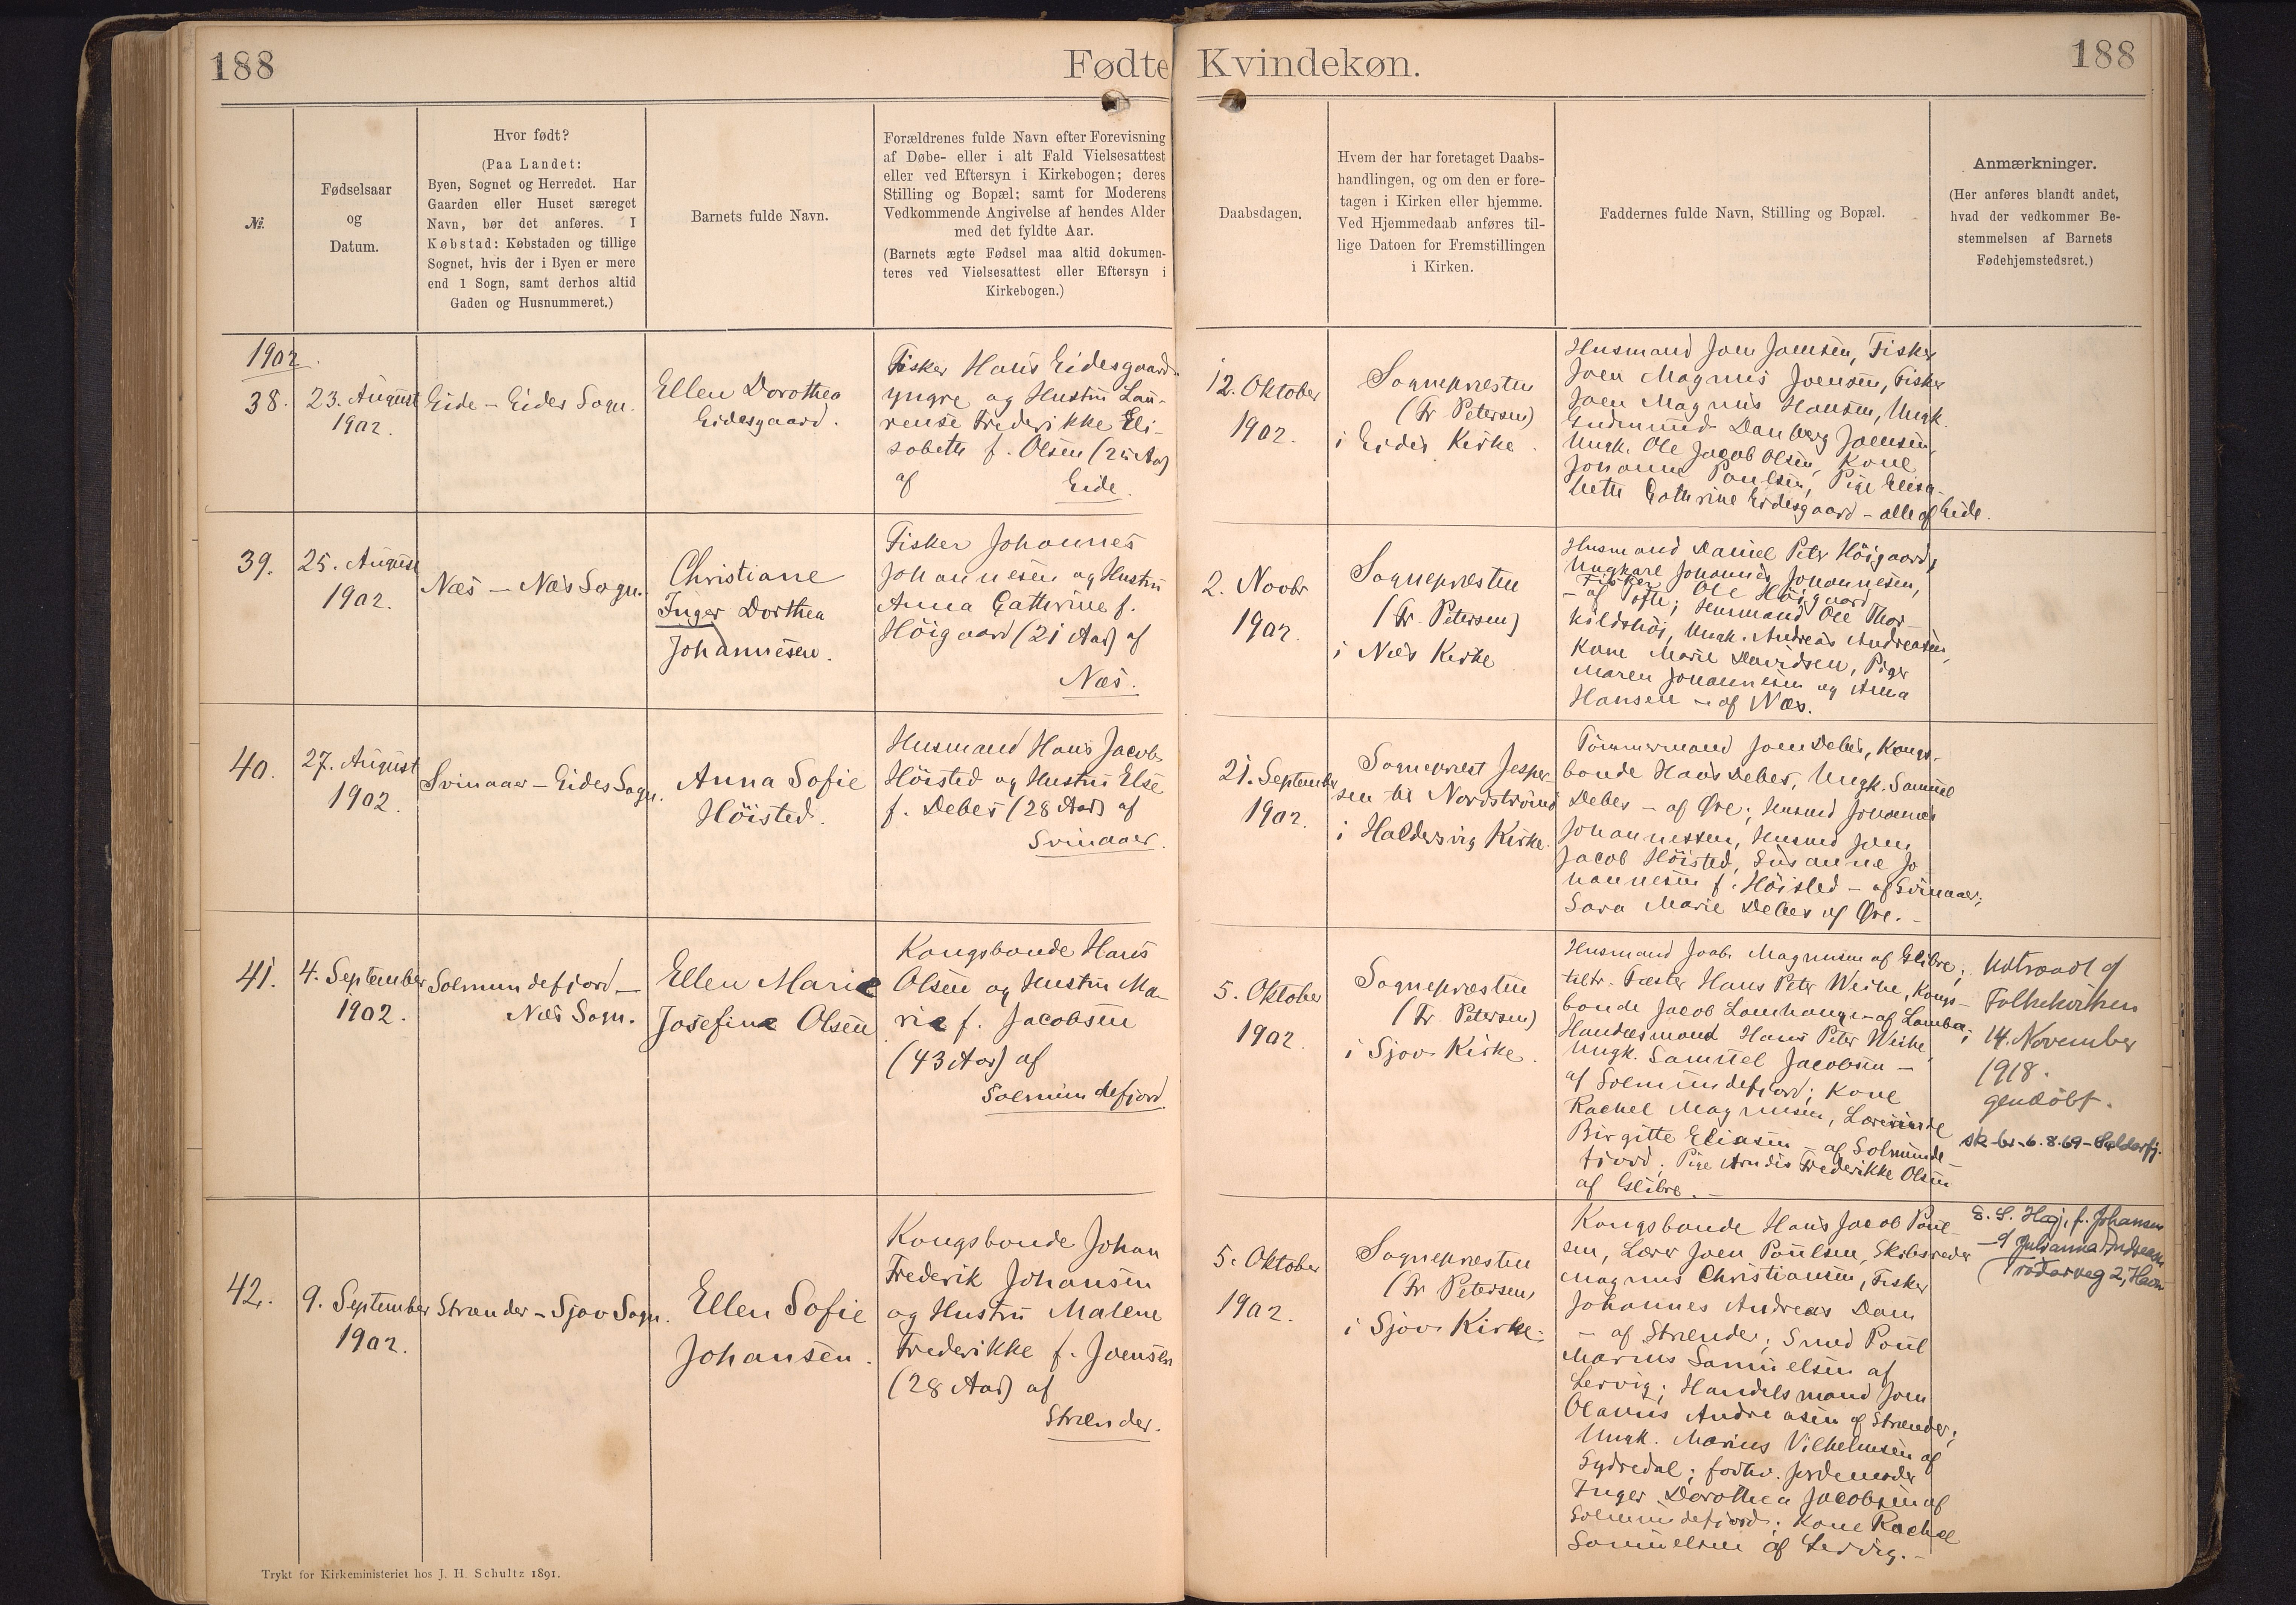 188
Fødte
Kvindekøn.
188
No.
Fødselsaar
og
Datum.
Hvor født?
(Paa Landet:
Byen, Sognet og Herredet. Har
Gaarden eller Huset særeget
Navn, bør det anføres. I
Købstad: Købstaden og tillige
Sognet, hvis der i Byen er mere
end 1 Sogn, samt derhos altid
Gaden og Husnummeret.)
Barnets fulde Navn.
Forældrenes fulde Navn efter Forevisning
af Døbe- eller i alt Fald Vielsesattest
eller ved Eftersyn i Kirkebogen; deres
Stilling og Bopæl; samt for Moderens
Vedkommende Angivelse af hendes Alder
med det fyldte Aar.
(Barnets ægte Fødsel maa altid dokumen-
teres ved Vielsesattest eller Eftersyn i
Kirkebogen.)
Daabsdagen.
Hvem der har foretaget Daabs-
handlingen, og om den er fore-
tagen i Kirken eller hjemme.
Ved Hjemmedaab anføres til-
lige Datoen for Fremstillingen
i Kirken.
Faddernes fulde Navn, Stilling og Bopæl.
Anmærkninger.
(Her anføres blandt andet,
hvad der vedkommer Be-
stemmelsen af Barnets
Fødehjemstedsret.)
1902.
38.
23. August
1902.
Eide - Eides Sogn.
Ellen Dorothea
Eidesgaard.
Fisker Hans Eidesgaard
yngre og Hustru Lau-
rense Frederikke Eli-
sabeth f. Olsen (25 Aar)
af Eide.
12. Oktober
1902.
Sognepræsten
(Fr. Petersen)
i Eides Kirke.
Husmand Joen Joensen, Fisker
Joen Magnus Joensen, Fisker
Joen Magnus Hansen, Ungk.
Gudmund Danberg Joensen,
Ungk. Ole Jacob Olsen, Kone
Johanne Poulsen, Pige Elisa-
beth Cathrine Eidesgaard - alle af Eide.
39.
25. August
1902.
Næs - Næs Sogn.
Christiane
Inger Dorthea
Johannesen.
Fisker Johannes
Johannesen og Hustru
Anna Cathrine f.
Höigaard (21 Aar) af
Næs.
2. Novbr
1902.
Sognepræsten
(Fr. Petersen)
i Næs Kirke
Husmand Daniel Peter Höigaard,
Ungkarl Johannes Johannesen,
Fisker Ole Höigaard
- af Tofte; Husmand Ole Thor-
kildshöi, Ungk. Andreas Andreasen,
Kone Marie Davidsen, Piger
Maren Johannesen og Anna
Hansen - af Næs.
40.
27. August
1902.
Svinaaer - Eides Sogn.
Anna Sofie
Höisted.
Husmand Hans Jacob
Höisted og Hustru Else
f. Debes (28 Aar) af
Svinaaer.
21. September
1902.
Sognepræst Jesper-
sen til Nordströmö
i Haldersvig Kirke.
Tömmermand Joen Debes, Kongs-
bonde Hans Debes, Ungk. Samuel
Debes - af Øre; Husmd Johannes
Johannessen, Husmd Joen
Jacob Höisted, Susanne Jo
hannesen f. Höisted - af Svinaaer;
Sara Marie Debes af Øre. -
41.
4. September
1902.
Solmundefjord -
Næs Sogn.
Ellen Marie
Josefine Olsen
Kongsbonde Hans
Olsen og Hustru Ma-
rie f. Jacobsen
(43 Aar) af
Solmundefjord.
5. Oktober
1902.
Sognepræsten
(Fr. Petersen)
i Sjov Kirke.
Husmand Jacob Magnusen af Glibre;
tiltr. Fæster Hans Peter Weihe, Kongs-
bonde Jacob Lamhauge - af Lamba;
Handelsmand Hans Peter Weihe,
Ungk. Samuel Jacobsen -
af Solmundefjord; Kone
Rachel Magnusen, Lærerinde
Birgitte Eliasen - af Solmunde-
fjord; Pige Arndis Frederikke Olsen
af Glibre. -
Udtraadt af
Folkekirken
14. November
1918.
gendöbt.
sk-br-6.8.69-
42.
9. September
1902.
Strænder - Sjov Sogn.
Ellen Sofie
Johansen.
Kongsbonde Johan
Frederik Johansen
og Hustru Malene
Frederikke f. Joensen
(28 Aar) af
Strænder.
5. Oktober
1902.
Sognepræsten
(Fr Petersen)
i Sjov Kirke.
Kongsbonde Hans Jacob Poul-
sen, Lærer Joen Poulsen, Skibsreder
Magnus Christiansen, Fisker
Johannes Andreas Dam
- af Strænder; Smed Poul
Marius Samuelsen af
Lervig; Handelsmand Joen
Olavus Andreasen af Strænder;
Ungk. Marius Vilhelmsen af
Sydredal; Jordemoder
Inger Dorothea Jacobsen af
Solmundefjord; Kone Rachel
Samuelsen af Lervig. -
E. S. Høj, f. Johansen
Julianna Andreasen
Trykt for Kirkeministeriet hos J. H. Schultz 1891.